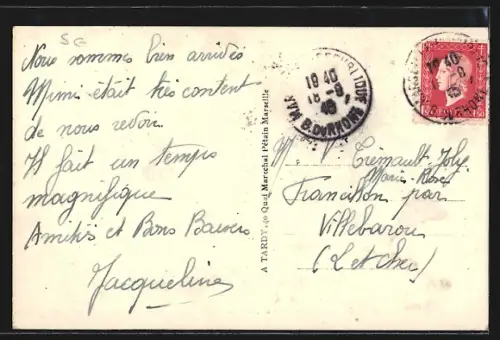 SG
Nous sommes bien arrivés
Mimi était très content
de nous revoir
Il fait un temps
magnifique
Amitiés et Bons Baisers
Jacqueline
A TARDY, 50 Quai Maréchal Pétain Marseille
REPUBLIQUE
19 40
18-9
45
B. DU RHONE
M.
Trémault-Joly
Marie-Rose
Francillon par
Villebarou
(L et cher)
19 40
B. DU RHONE